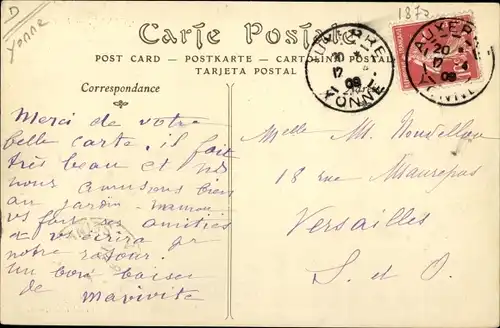 D
Yonne
1872
Carte Postale
POST CARD — POSTKARTE — CARTOLINA POSTALE
TARJETA POSTAL
Correspondance
AUXERRE
20
12
09
YONNE
AUXERRE
20
12
09
YONNE
Merci de votre
belle carte. il fait
très beau et ns
nous amusons bien
au jardin. maman
vs fait ses amitiés
et vs écrira
notre retour.
Un bon baiser
de
Melle M.
18 rue Maurepas
Versailles
S. et O.